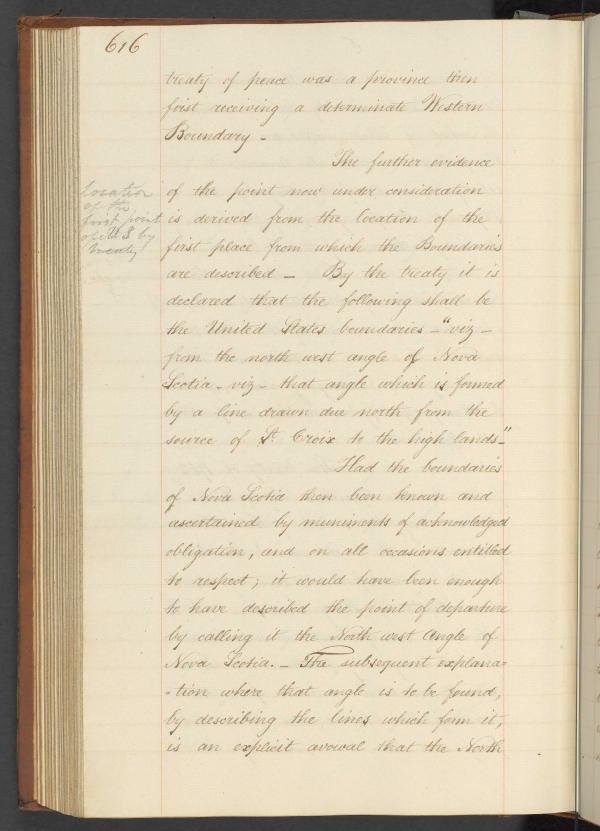 616
treaty of peace was a province then
first receiving a determinate Western
Boundary -
The further evidence
location
of the
first point
of U S by
treaty
of the point now under consideration
is derived from the location of the
first place from which the Boundaries
are described - By the treaty it is
declared that the following shall be
the United States boundaries - "viz -
from the north west angle of Nova
Scotia - viz - that angle which is formed
by a line drawn due north from the
source of St. Croix to the high lands -"
Had the boundaries
of Nova Scotia then been known and
ascertained by muniments of acknowledged
obligation, and on all occasions entitled
to respect; it would have been enough
to have described the point of departure
by calling it the North west Angle of
Nova Scotia. - The subsequent explana=
=tion where that angle is to be found,
by describing the lines which form it,
is an explicit avowal that the North